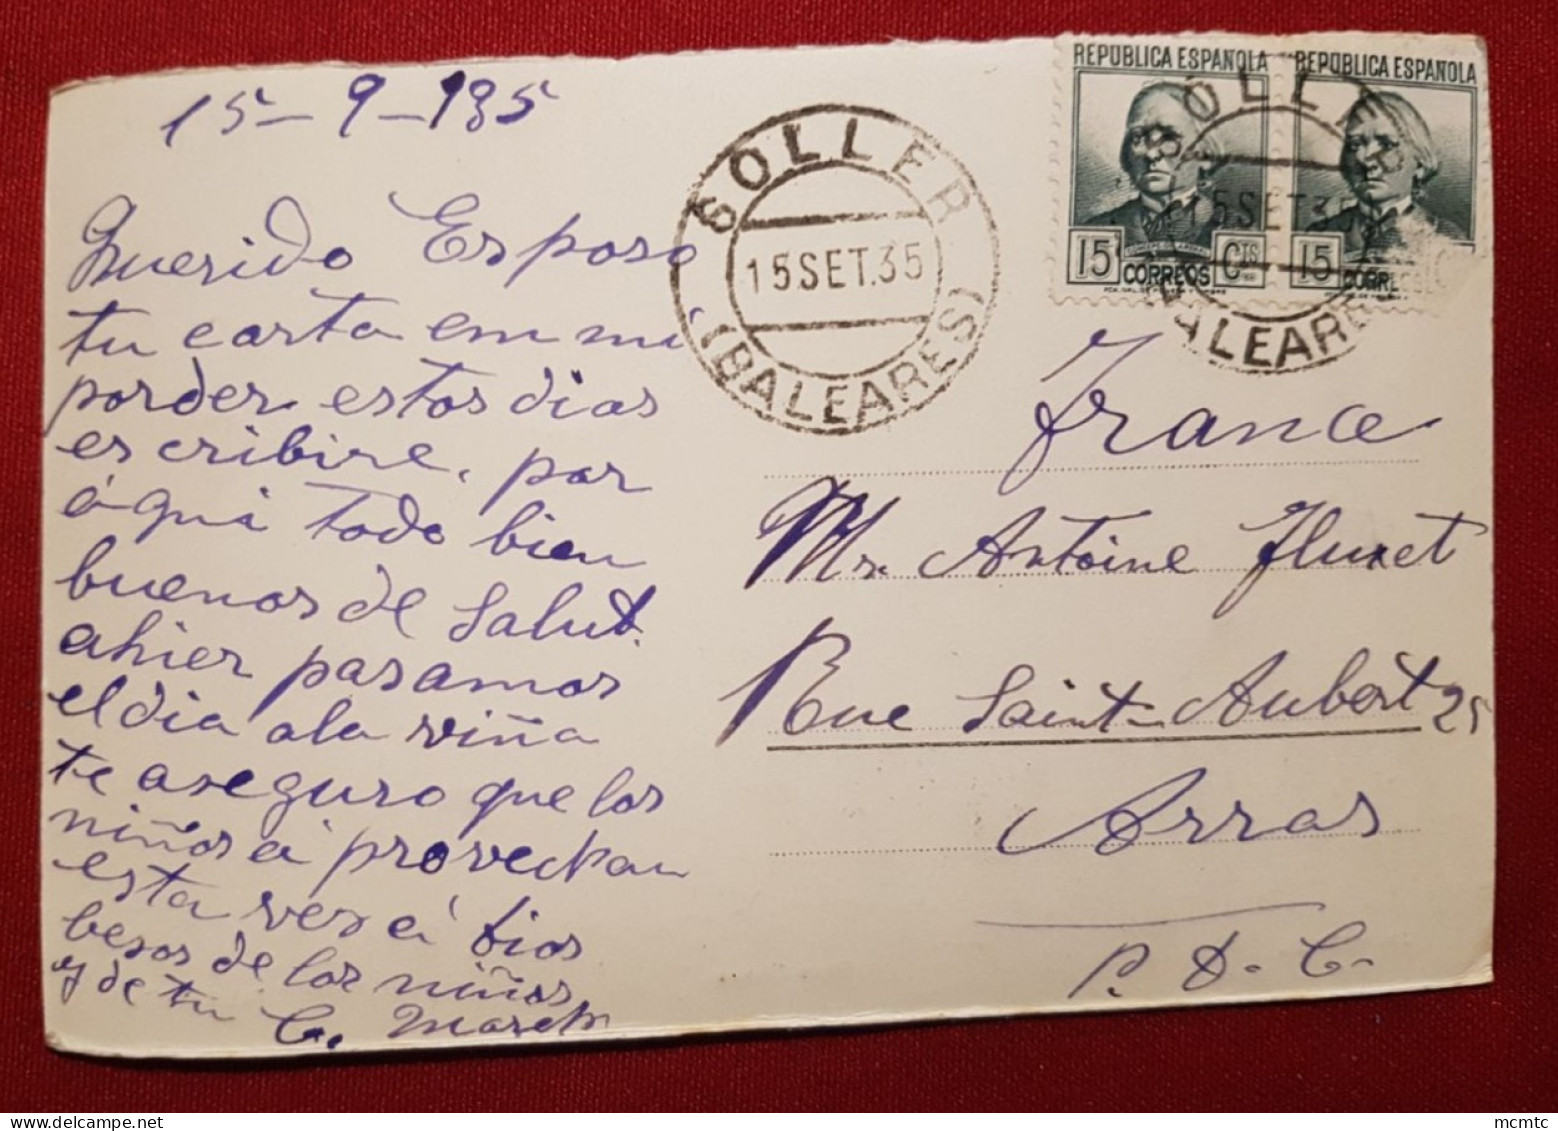 15-9-135
Querido Esposo
tu carta em mi
porder estos dias
escribire, por
áqui todo bien
buenos de Salut.
ahier pasamos
el dia a la viña
te aseguro que los
niños á provechan
esta ves á Dios
besos de los niños
y de tu C. March
SOLLER
15 SET. 35
(BALEARES)
REPUBLICA ESPAÑOLA
15 CORREOS CTS
REPUBLICA ESPAÑOLA
15 CORREOS
SOLLER
15 SET 35
BALEARES
France
Mr. Antoine
Rue Saint-Aubert 25
Arras
P. D. C.
mcmtc